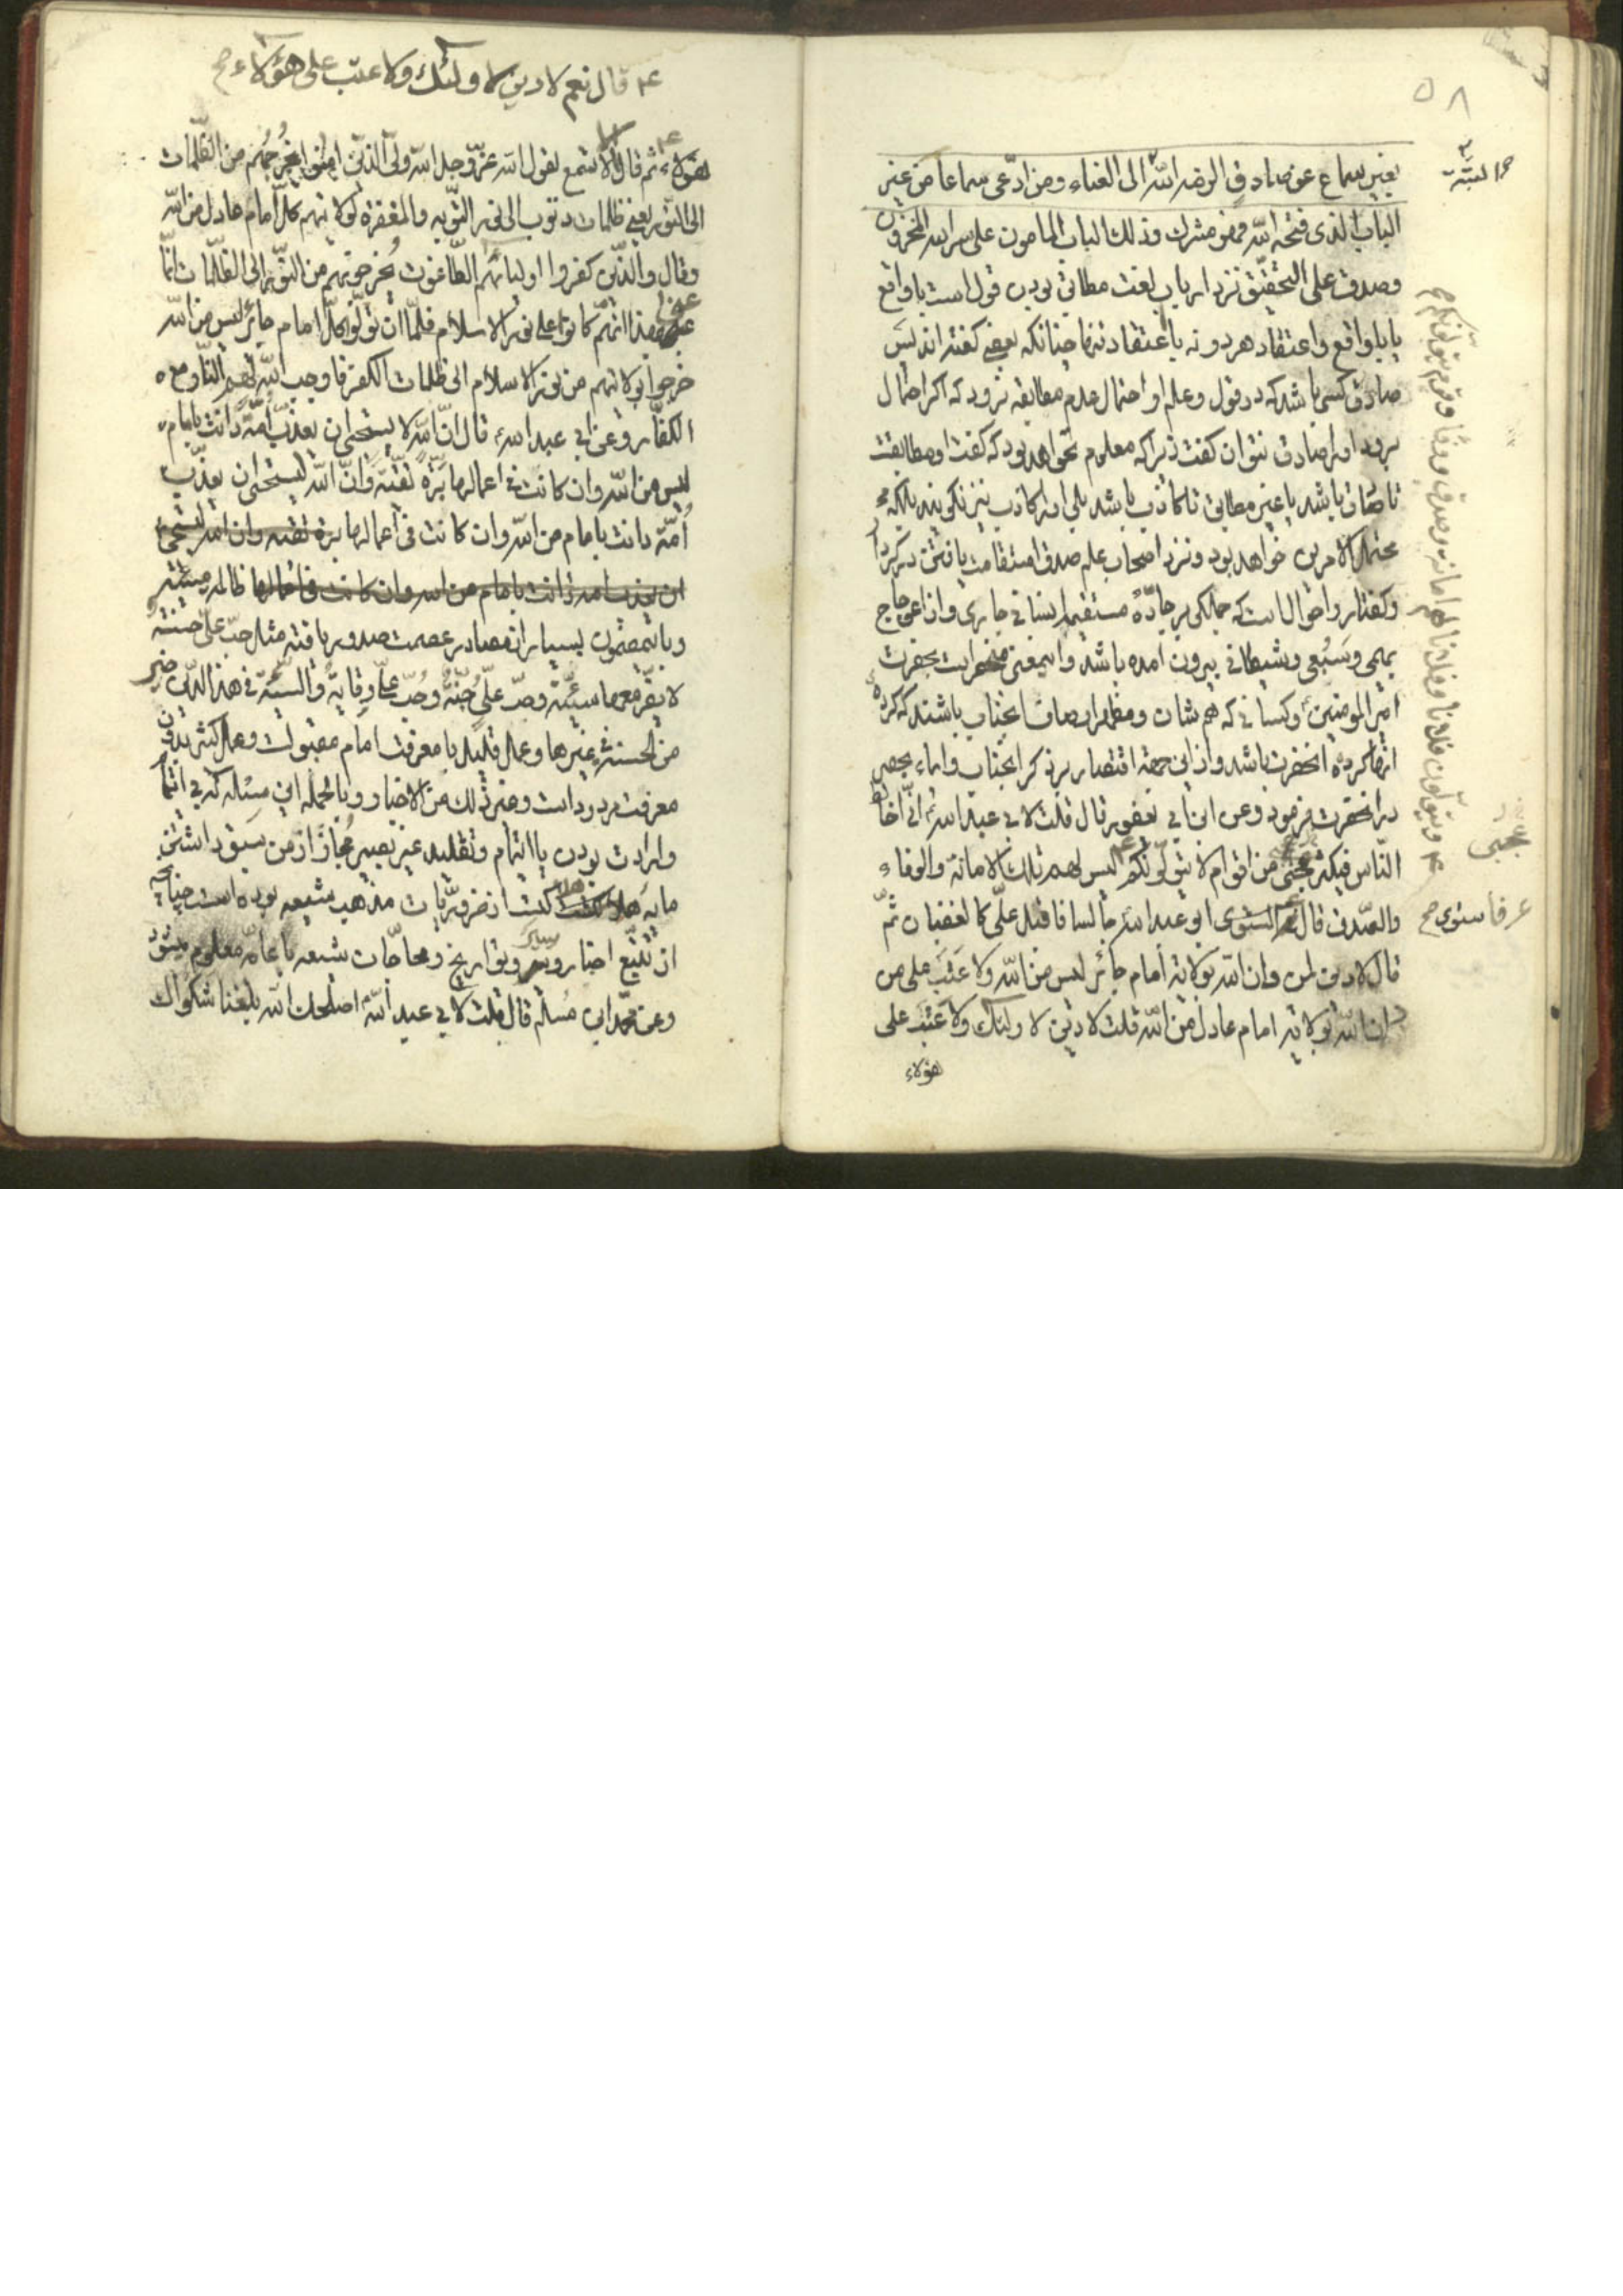 ۵۸
بغیر سماع عن صادق الزمه الله الی العناء ومن ادّعی سماعا من غیر
البتة
الباب الذی فتحه الله فهو مشرك وذلك الباب المامون علی سر الله المخزون
وصدق علی التحقیق نزد ارباب لغت مطابق بودن قول است با واقع
یا با واقع و اعتقاد هر دو نه با اعتقاد تنها چنانکه بعضی گفته اند پس
صادق کسی باشد که در قول و علم او احتمال عدم مطابقه نرود که اگر احتمال
برود او را صادق نتوان گفت زیرا که معلوم نخواهد بود که گفت او مطابقست
تا صادق باشد یا غیر مطابق تا کاذب باشد بلی او را کاذب نیز نگویند بلکه
محتمل الامرین خواهد بود و نزد اصحاب علم صدق استقامت یافتن کردار
و گفتار و احوال است که جملگی بر جادّه مستقیم انسانی جاری و از اعوجاج
بهیمی و سبعی و شیطانی بیرون آمده باشد و اینمعنی منحصر است بحضرت
امیر المومنین و کسانی که هم شان و مظهر اوصاف انجناب باشند که کرده
انها کرده انحضرت باشد و از این جهة اقتصار بر ذکر انجناب و ایماء بحصر
در انحضرت فرمود وعن ابن ابی یعفور قال قلت لابی عبد الله انّی اخالط
النّاس فیکثر عجبی من اقوام لا یتولّونکم
عجبی
ویتولّون فلانا وفلانا لهم امانة وصدق ووفاء وقوم یتولّونکم صح
لیس لهم تلك الامانة والوفاء
والصّدق قال فاستوی ابو عبد الله جالسا فاقبل علیّ کالغضبان ثمّ
فاستوی صح
قال لا دین لمن دان الله بولایة امام جائر لیس من الله ولا عتب علی من
دان الله بولایة امام عادل من الله قلت لا دین لاولئك ولا عتب علی
هؤلاء
قال نعم لا دین لاولئك ولا عتب علی هؤلاء صح
هؤلاء ثم قال الا تسمع لقول الله عزّ وجل الله ولیّ الذین امنوا یخرجهم من الظّلمات
الی النور یعنی ظلمات ذنوب الی نور التّوبه والمغفرة لولایتهم کلّ امام عادل من الله
وقال والّذین کفروا اولیائهم الطّاغوت یخرجونهم من النّور الی الظّلمات انّما
عنی بهذا انّهم کانوا علی نور الاسلام فلمّا ان تولّوا کلّ امام جائر لیس من الله
خرجوا بولایتهم من نور الاسلام الی ظلمات الکفر فاوجب الله لهم النّار مع
الکفّار وعن ابی عبد الله قال انّ الله لا یستحیی ان یعذّب امّة دانت بامام
لیس من الله وان کانت فی اعمالها برّة تقیّة وانّ الله لیستحیی ان یعذّب
أمّة دانت بامام من الله وان کانت فی اعمالها برة تقیه وان الله لیستحیی
ان یعذب امة دانت بامام من الله وان کانت فی اعمالها ظالمه مسیئه
و باینمضمون بسیار از مصادر عصمت صدور یافته مثل حبّ علیّ حسنة
لا یضرّ معها سیّئة وحبّ علیّ جنّة وحبّ علیّ وقایة والسیّئة فی هذا الدّین خیر
من الحسنة فی غیرها و عمل قلیل با معرفت امام مقبولست و عمل کثیر بدون
معرفت مردود است وغیر ذلك من الاخبار و بالجمله این مسئله که فی
و ارادت بودن با ائتمام و تقلید غیر بصیر مجاز از من سیق داشتن
مایه هلاکت است از ضروریّات مذهب شیعه بوده است چنانچه
از تتبّع اخبار و سیر و تواریخ و محاجّات شیعه با عامّه معلوم میشود
وعن محمّد ابن مسلم قال قلت لابی عبد الله اصلحك الله بلغنا شکواك